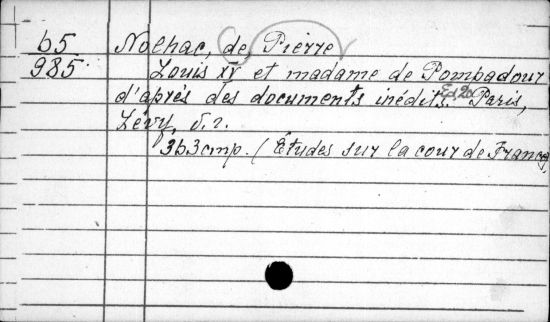 65 Nolhac, de, Pierre
985. Louis XV et madame de Pompadour
d'après des documents inédits. Ed. 20. Paris,
Lévy, s.r.
363cmp. (Études sur la cour de France)